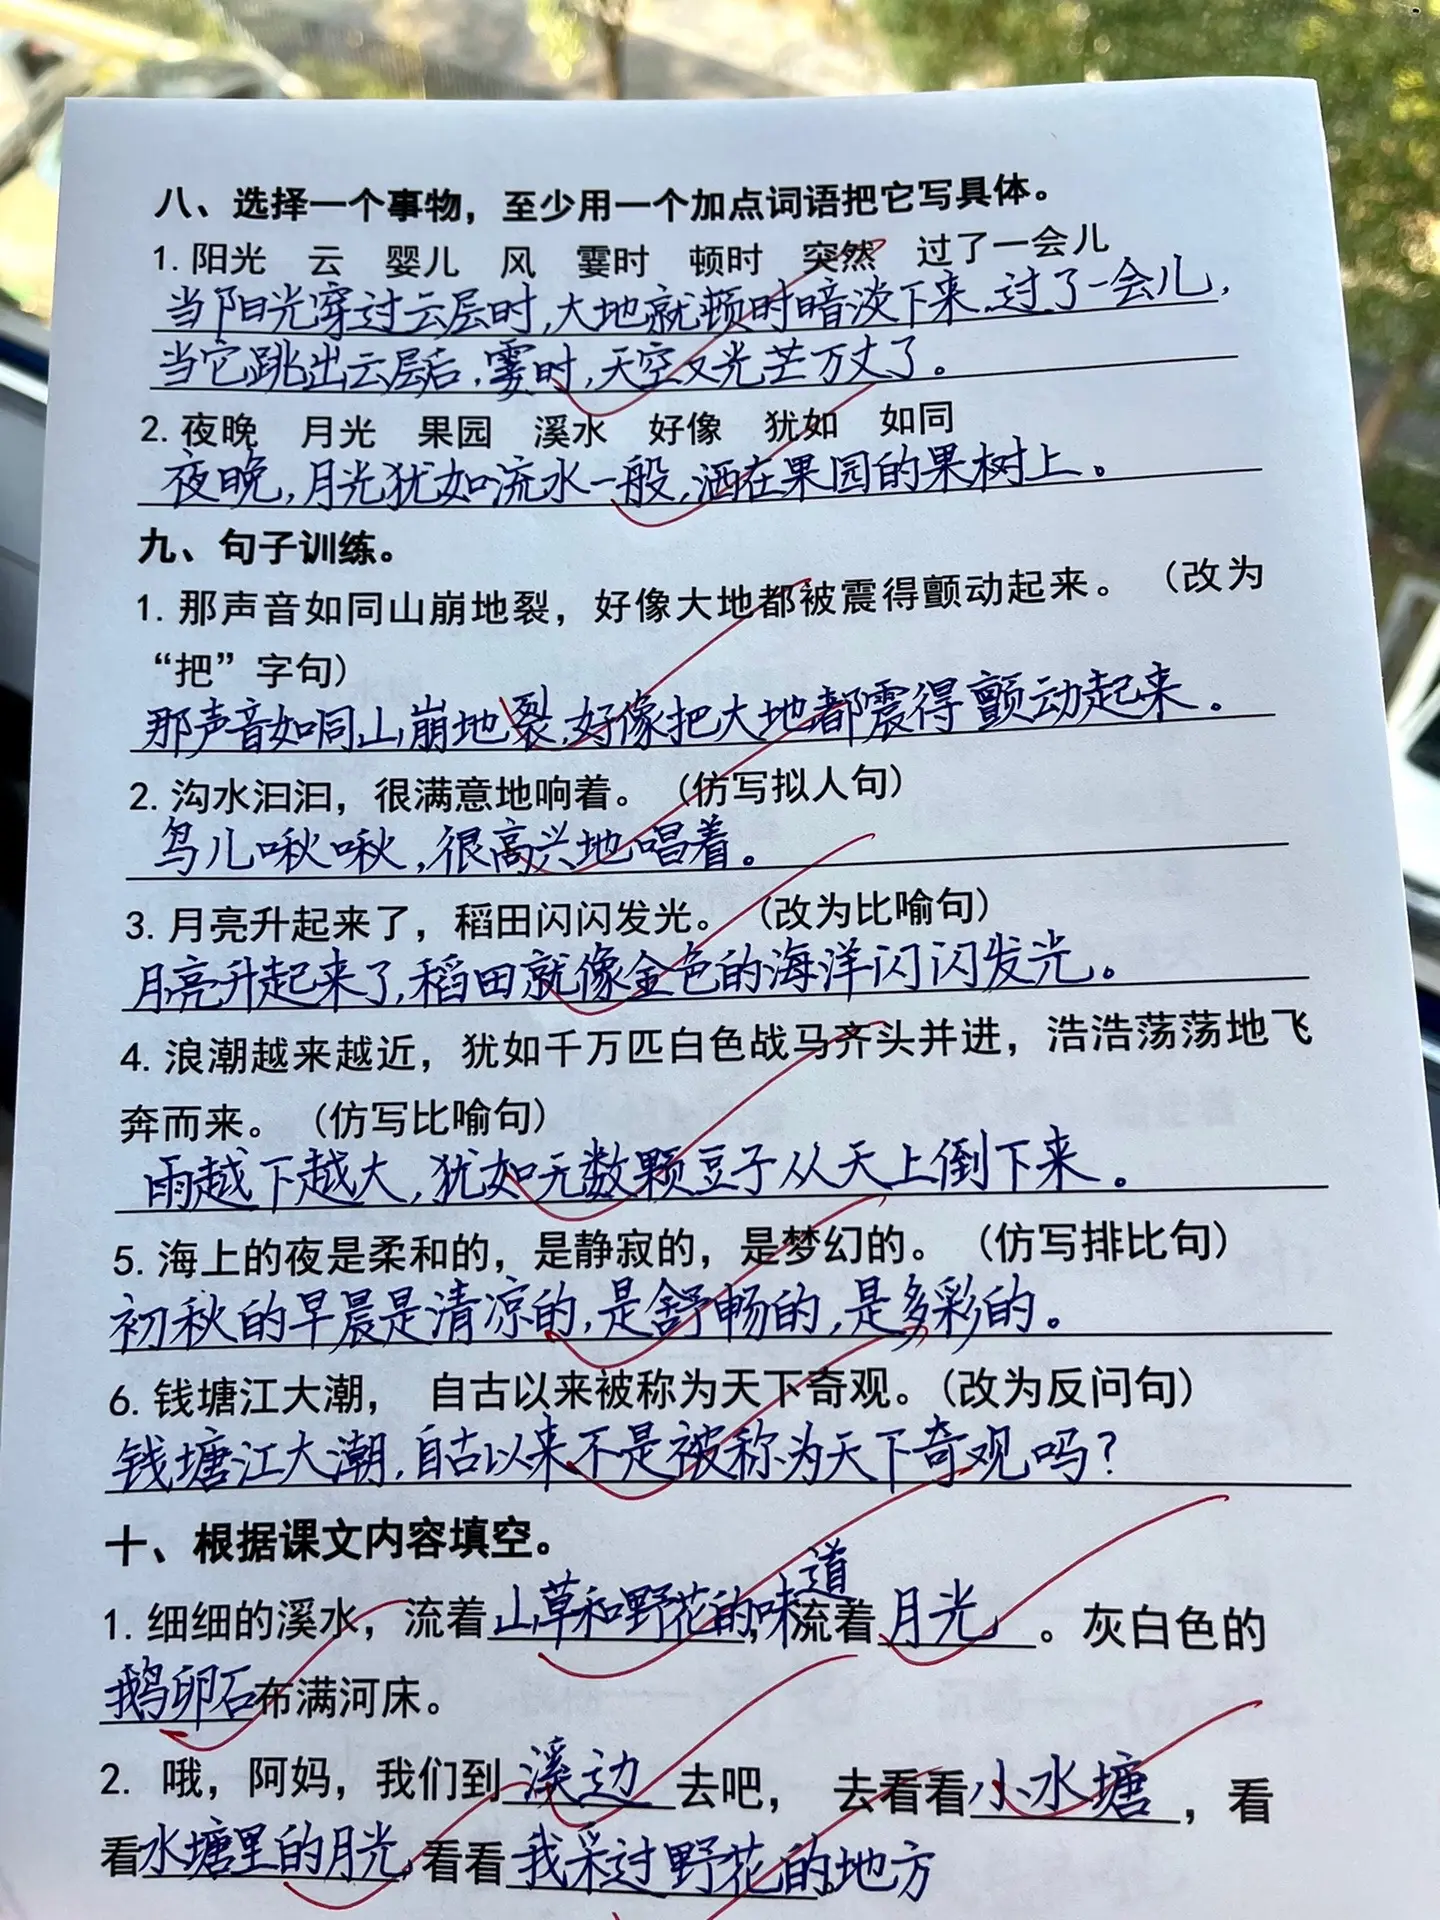 八、选择一个事物，至少用一个加点词语把它写具体。
1. 阳光 云 婴儿 风 霎时 顿时 突然 过了一会儿
当阳光穿过云层时，大地就顿时暗淡下来。过了一会儿，
当它跳出云层后，霎时，天空又光芒万丈了。
2. 夜晚 月光 果园 溪水 好像 犹如 如同
夜晚，月光犹如流水一般，洒在果园的果树上。
九、句子训练。
1. 那声音如同山崩地裂，好像大地都被震得颤动起来。（改为
“把”字句）
那声音如同山崩地裂，好像把大地都震得颤动起来。
2. 沟水汩汩，很满意地响着。（仿写拟人句）
鸟儿啾啾，很高兴地唱着。
3. 月亮升起来了，稻田闪闪发光。（改为比喻句）
月亮升起来了，稻田就像金色的海洋闪闪发光。
4. 浪潮越来越近，犹如千万匹白色战马齐头并进，浩浩荡荡地飞
奔而来。（仿写比喻句）
雨越下越大，犹如无数颗豆子从天上倒下来。
5. 海上的夜是柔和的，是静寂的，是梦幻的。（仿写排比句）
初秋的早晨是清凉的，是舒畅的，是多彩的。
6. 钱塘江大潮， 自古以来被称为天下奇观。（改为反问句）
钱塘江大潮，自古以来不是被称为天下奇观吗？
十、根据课文内容填空。
1. 细细的溪水，流着山草和野花的味道，流着月光。灰白色的
鹅卵石布满河床。
2. 哦，阿妈，我们到溪边去吧， 去看看小水塘，看
看水塘里的月光，看看我采过野花的地方